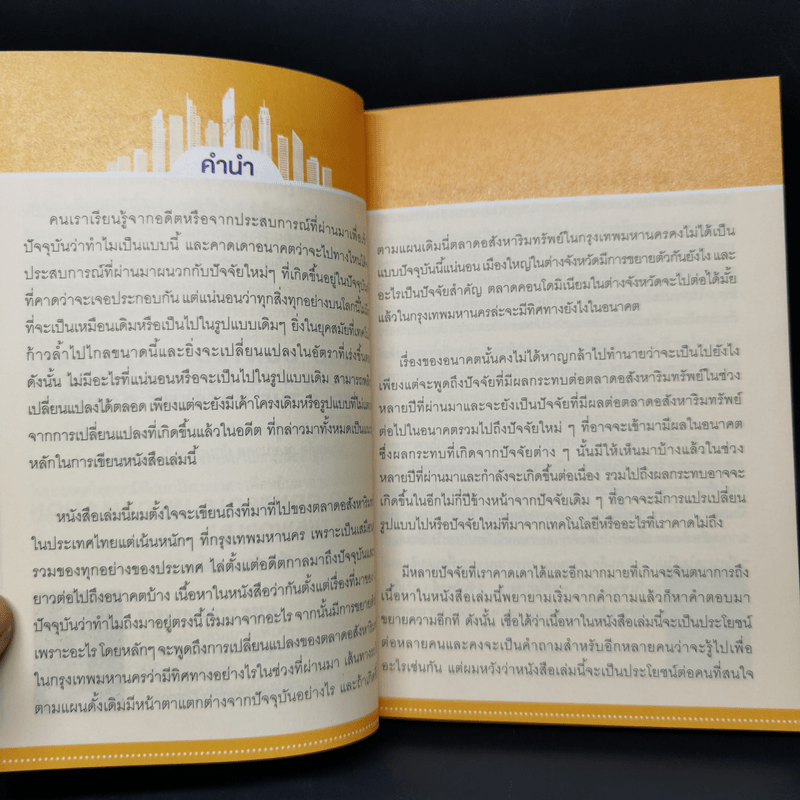 คำนำ
คนเราเรียนรู้จากอดีตหรือจากประสบการณ์ที่ผ่านมาเพื่อ
ปัจจุบันว่าทำไมเป็นแบบนี้ และคาดเดาอนาคตว่าจะไปทางไหน
ประสบการณ์ที่ผ่านมาผนวกกับปัจจัยใหม่ๆ ที่เกิดขึ้นอยู่ในปัจจุบัน
ที่คาดว่าจะเจอประกอบกัน แต่แน่นอนว่าทุกสิ่งทุกอย่างบนโลกนี้
ที่จะเป็นเหมือนเดิมหรือเป็นไปในรูปแบบเดิมๆ ยิ่งในยุคสมัยที่
ก้าวล้ำไปไกลขนาดนี้และยิ่งจะเปลี่ยนแปลงในอัตราที่เร่งขึ้น
ดังนั้น ไม่มีอะไรที่แน่นอนหรือจะเป็นไปในรูปแบบเดิม สามารถ
เปลี่ยนแปลงได้ตลอด เพียงแต่จะยังมีเค้าโครงเดิมหรือรูปแบบที่
จากการเปลี่ยนแปลงที่เกิดขึ้นแล้วในอดีต ที่กล่าวมาทั้งหมดเป็น
หลักในการเขียนหนังสือเล่มนี้
หนังสือเล่มนี้ผมตั้งใจจะเขียนถึงที่มาที่ไปของตลาดอสังหาริม
ในประเทศไทยแต่เน้นหนักๆ ที่กรุงเทพมหานคร เพราะเป็น
รวมของทุกอย่างของประเทศ ไล่ตั้งแต่อดีตกาลมาถึงปัจจุบัน
ยาวต่อไปถึงอนาคตบ้าง เนื้อหาในหนังสือว่ากันตั้งแต่เรื่องที่มาของ
ปัจจุบันว่าทำไมถึงมาอยู่ตรงนี้ เริ่มมาจากอะไร จากนั้นมีการขยาย
เพราะอะไร โดยหลักๆ จะพูดถึงการเปลี่ยนแปลงของตลาดอสังหาริม
ในกรุงเทพมหานครว่ามีทิศทางอย่างไรในช่วงที่ผ่านมา เส้นทาง
ตามแผนดั้งเดิมมีหน้าตาแตกต่างจากปัจจุบันอย่างไร และถ้า
ตามแผนเดิมนี่ตลาดอสังหาริมทรัพย์ในกรุงเทพมหานครคงไม่ได้เป็น
แบบปัจจุบันนี้แน่นอน เมืองใหญ่ในต่างจังหวัดมีการขยายตัวกันยังไง และ
อะไรเป็นปัจจัยสำคัญ ตลาดคอนโดมิเนียมในต่างจังหวัดจะไปต่อได้มั้ย
แล้วในกรุงเทพมหานครล่ะจะมีทิศทางยังไงในอนาคต
เรื่องของอนาคตนั้นคงไม่ได้หาญกล้าไปทำนายว่าจะเป็นไปยังไง
เพียงแต่จะพูดถึงปัจจัยที่มีผลกระทบต่อตลาดอสังหาริมทรัพย์ในช่วง
หลายปีที่ผ่านมาและจะยังเป็นปัจจัยที่มีผลต่อตลาดอสังหาริมทรัพย์
ต่อไปในอนาคตรวมไปถึงปัจจัยใหม่ ๆ ที่อาจจะเข้ามามีผลในอนาคต
ซึ่งผลกระทบที่เกิดจากปัจจัยต่าง ๆ นั้นมีให้เห็นมาบ้างแล้วในช่วง
หลายปีที่ผ่านมาและกำลังจะเกิดขึ้นต่อเนื่อง รวมไปถึงผลกระทบอาจจะ
เกิดขึ้นในอีกไม่กี่ปีข้างหน้าจากปัจจัยเดิม ๆ ที่อาจจะมีการแปรเปลี่ยน
รูปแบบไปหรือปัจจัยใหม่ที่มาจากเทคโนโลยีหรืออะไรที่เราคาดไม่ถึง
มีหลายปัจจัยที่เราคาดเดาได้และอีกมากมายที่เกินจะจินตนาการถึง
เนื้อหาในหนังสือเล่มนี้พยายามเริ่มจากคำถามแล้วก็หาคำตอบมา
ขยายความอีกที ดังนั้น เชื่อได้ว่าเนื้อหาในหนังสือเล่มนี้จะเป็นประโยชน์
ต่อหลายคนและคงจะเป็นคำถามสำหรับอีกหลายคนว่าจะรู้ไปเพื่อ
อะไรเช่นกัน แต่ผมหวังว่าหนังสือเล่มนี้จะเป็นประโยชน์ต่อคนที่สนใจ